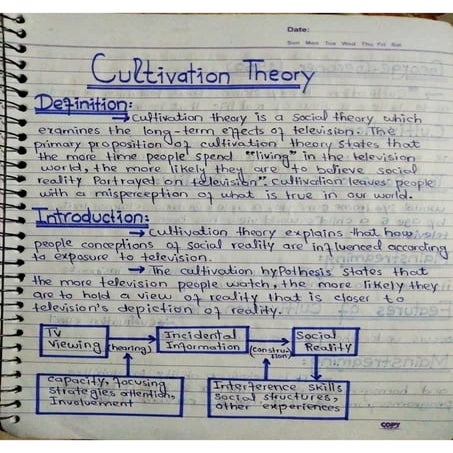 Date:
Sun Mon Tue Wed Thu Fri Sat
Cultivation Theory
Definition:
→ Cultivation theory is a social theory which
examines the long-term effects of television. The
primary proposition of cultivation theory states that
the more time people spend "living" in the television
world, the more likely they are to believe social
reality Portrayed on television". Cultivation leaves people
with a misperception of what is true in our world.
Introduction:
→ Cultivation theory explains that how
people conceptions of social reality are influenced according
to exposure to television.
→ The cultivation hypothesis states that
the more television people watch, the more likely they
are to hold a view of reality that is closer to
television's depiction of reality.
TV Viewing
(hearing)
Incidental Information
(construction)
Social Reality
Capacity, focusing
Strategies attention,
Involvement
Interference skills
social structures,
other experiences
COPY